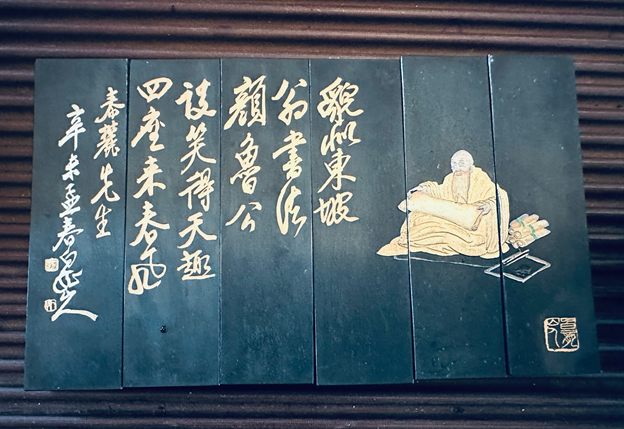 貌似東坡
翁書法
顏魯公
談笑得天趣
四座来春風
泰麓先生
辛未孟春白